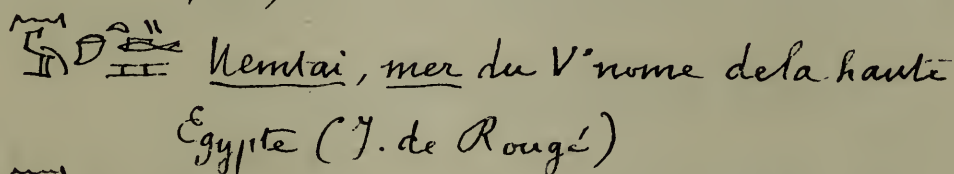 Nemtai, mer du Ve nome de la haute
Egypte (J. de Rougé)